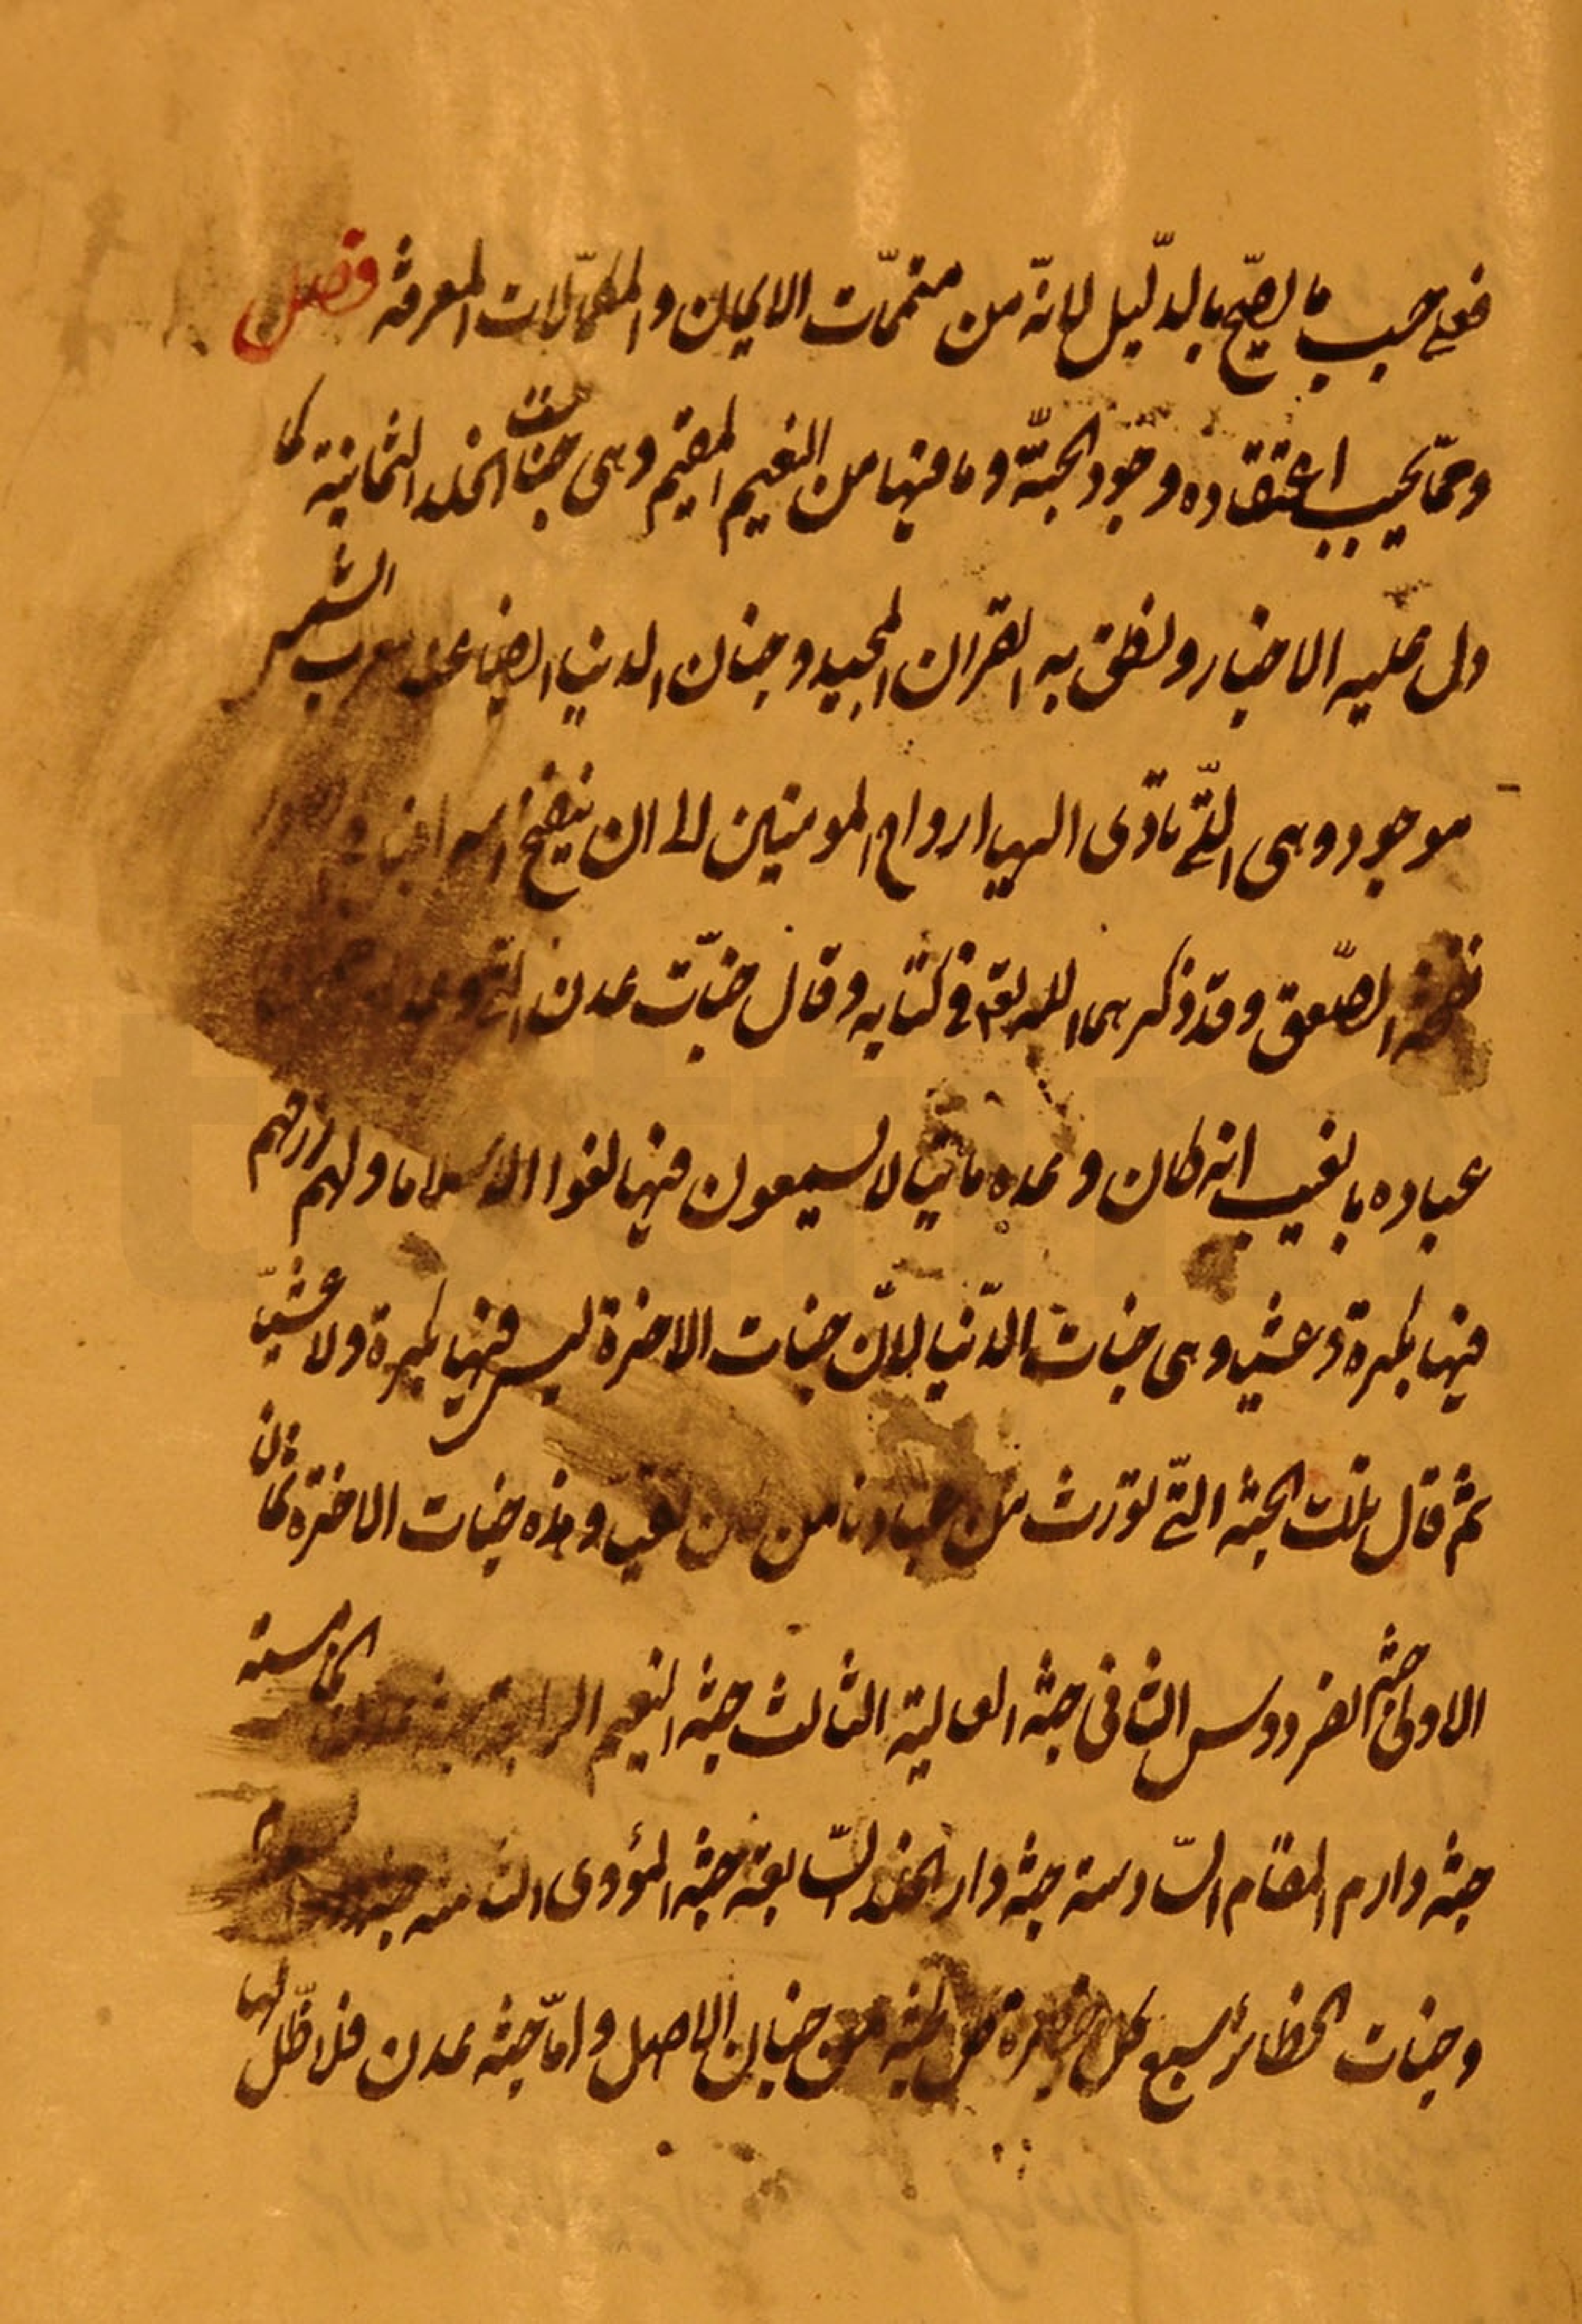 فعلى حسب ما يصح بالدّليل لانّه من متممّات الايمان والمكمّلات المعرفة فصل
وممّا يجب اعتقاده وجود الجنّة وما فيها من النعيم المقيم وهى جنات الخلد الثمانية كما
دل عليه الاخبار ونطق به القران المجيد وجنان الدنيا ايضا عند مغرب الشمس
موجود وهى الّتى تأوى اليها ارواح المومنين الى ان ينفخ اسرافيل
نفخة الصّعق وقد ذكرهما الله تعه فى كتابه وقال جنّات عدن الّتى وعد
عباده بالغيب انه كان وعده ماتيا لا يسمعون فيها لغوا الا سلاما ولهم رزقهم
فيها بكرة وعشيا وهى جنات الدّنيا لانّ جنات الاخرة ليس فيها بكرة ولا عشيّا
ثم قال تلك الجنة الّتى نورث من عبادنا من كان تقيا وهذه جنات الاخرة ثمان
الاولى جنّة الفردوس الثانى جنة العالية الثالث جنة النعيم الرابعة جنة عدن الخامسة
جنة دارم المقام السّادسة جنة دار الخلد السّابعة جنة المؤوى الثامنة جنة
وجنات الحظائر سبع كل حظيرة ظل جنة من جنان الاصل وامّا جنة عدن فلا ظّل لها